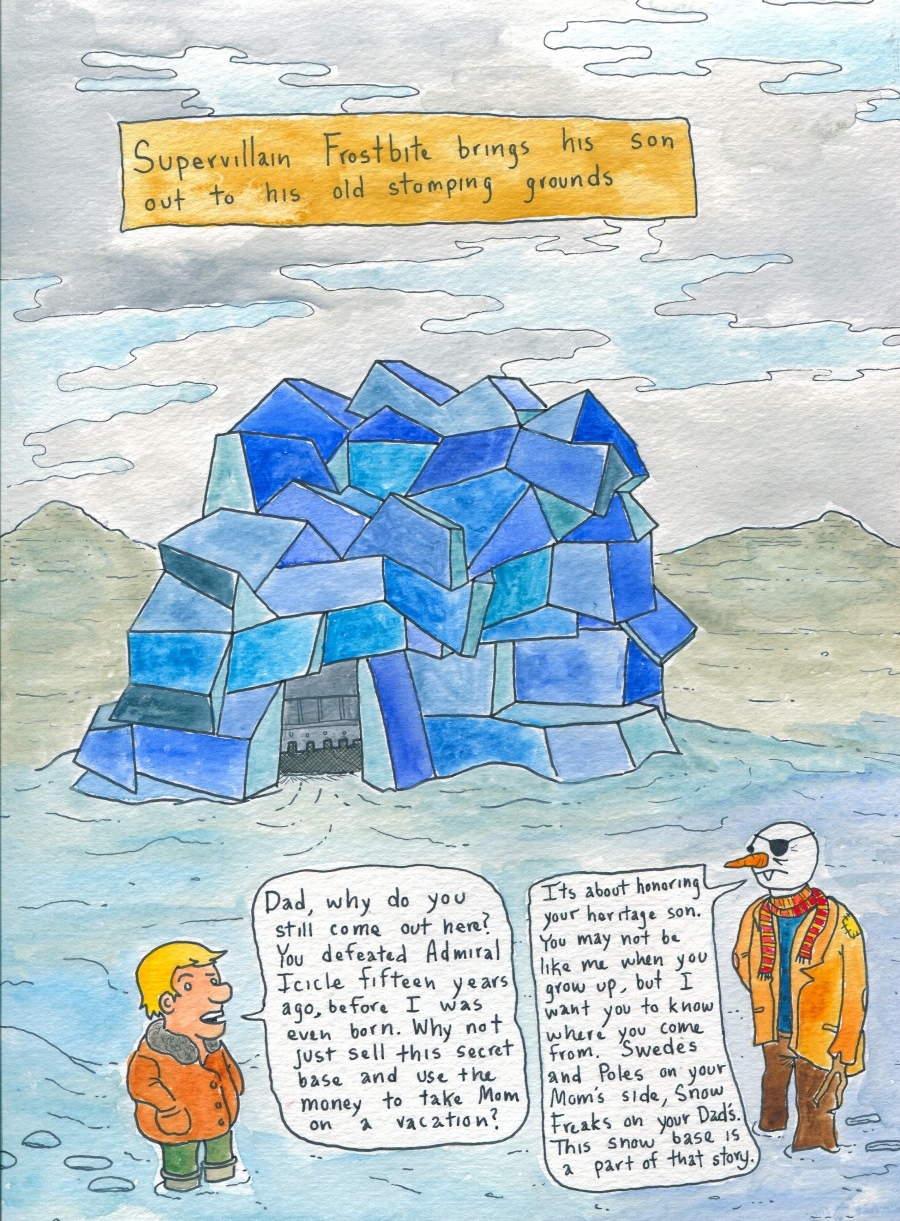 Supervillain Frostbite brings his son
out to his old stomping grounds
Dad, why do you
still come out here?
You defeated Admiral
Icicle fifteen years
ago, before I was
even born. Why not
just sell this secret
base and use the
money to take Mom
on a vacation?
Its about honoring
your heritage son.
You may not be
like me when you
grow up, but I
want you to know
where you come
from. Swedes
and Poles on your
Mom's side, Snow
Freaks on your Dad's.
This snow base is
a part of that story.